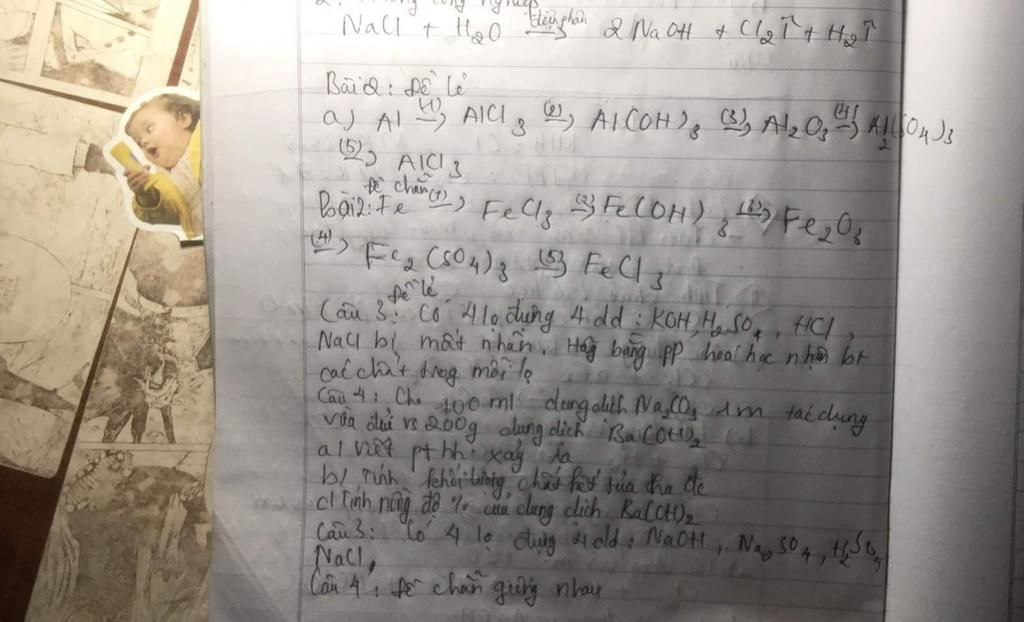 2. Trong công nghiệp
NaCl + H2O điện phân → 2 NaOH + Cl2↑ + H2↑
Bài 2: Đề lẻ
a) Al (1)→ AlCl3 (2)→ Al(OH)3 (3)→ Al2O3 (4)→ Al2(SO4)3
(5)→ AlCl3
Đề chẵn
Bài 2: Fe (1)→ FeCl3 (2)→ Fe(OH)3 (3)→ Fe2O3
(4)→ Fe2(SO4)3 (5)→ FeCl3
Đề lẻ
Câu 3: Có 4 lọ đựng 4 dd: KOH, H2SO4, HCl,
NaCl bị mất nhãn. Hãy bằng pp hoá học nhận bt
các chất trog mỗi lọ
Câu 4: Cho 100 ml dung dịch Na2CO3 1m tác dụng
vừa đủ vs 200g dung dịch Ba(OH)2
a/ viết pthh xảy ra
b/ Tính khối lượng chất kết tủa thu đc
c/ Tính nồng độ % của dung dịch Ba(OH)2
Câu 3: Có 4 lọ đựng 4 dd: NaOH, Na2SO4, H2SO4
NaCl,
Câu 4: Đề chẵn giống nhau